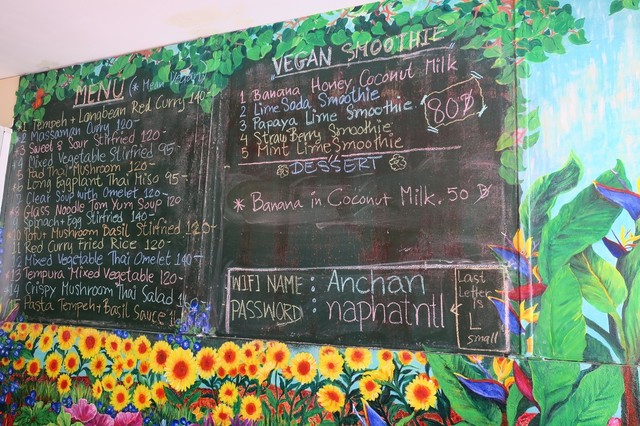 MENU (* Mean Vegan)
1 Tempeh + Langbean Red Curry 140-
2 Massaman Curry 120-
3 Sweet & Sour Stirfried 120-
4 Mixed Vegetable Stirfried 95-
5 Pad Thai Mushroom 120-
6 Long Eggplant Thai Miso 95-
7 Clear Soup with Omelet 120-
8 Glass Noodle Tom Yum Soup 120
Spinach + Egg Stirfried 140-
Mushroom Basil Stirfried 120-
1 Red Curry Fried Rice 120-
2 Mixed Vegetable Thai Omelet 140-
13 Tempura Mixed Vegetable 120-
14 Crispy Mushroom Thai Salad
15 Pasta Tempeh + Basil Sauce
VEGAN SMOOTHIE
1 Banana Honey Coconut Milk
2 Lime Soda Smoothie
3 Papaya Lime Smoothie
4 StrawBerry Smoothie
5 Mint Lime Smoothie
80฿
DESSERT
* Banana in Coconut Milk. 50 ฿
WIFI NAME : Anchan
PASSWORD : naphatntl
Last
Letter
Is
L
small